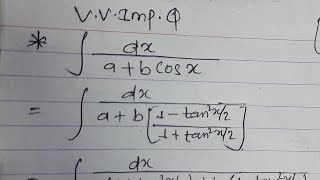 V.V.Imp.Q
* ∫ dx / (a + b cos x)
= ∫ dx / (a + b [ (1 - tan² x/2) / (1 + tan² x/2) ])
dx